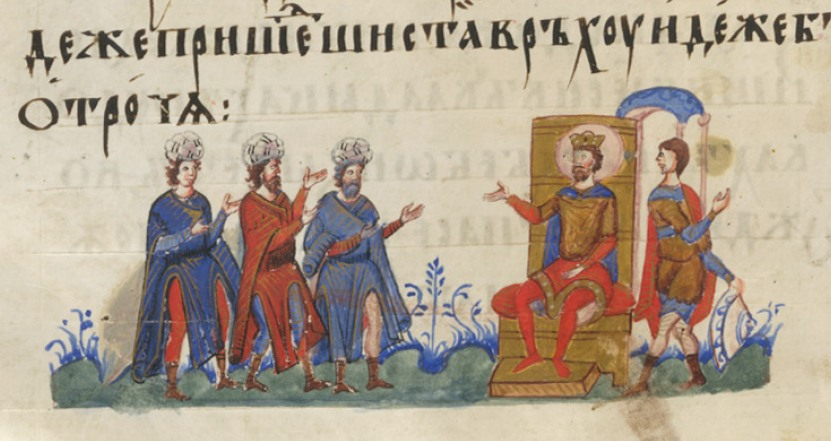 дежепришеⷣшиставръхоуидежеб
отрочѧ: